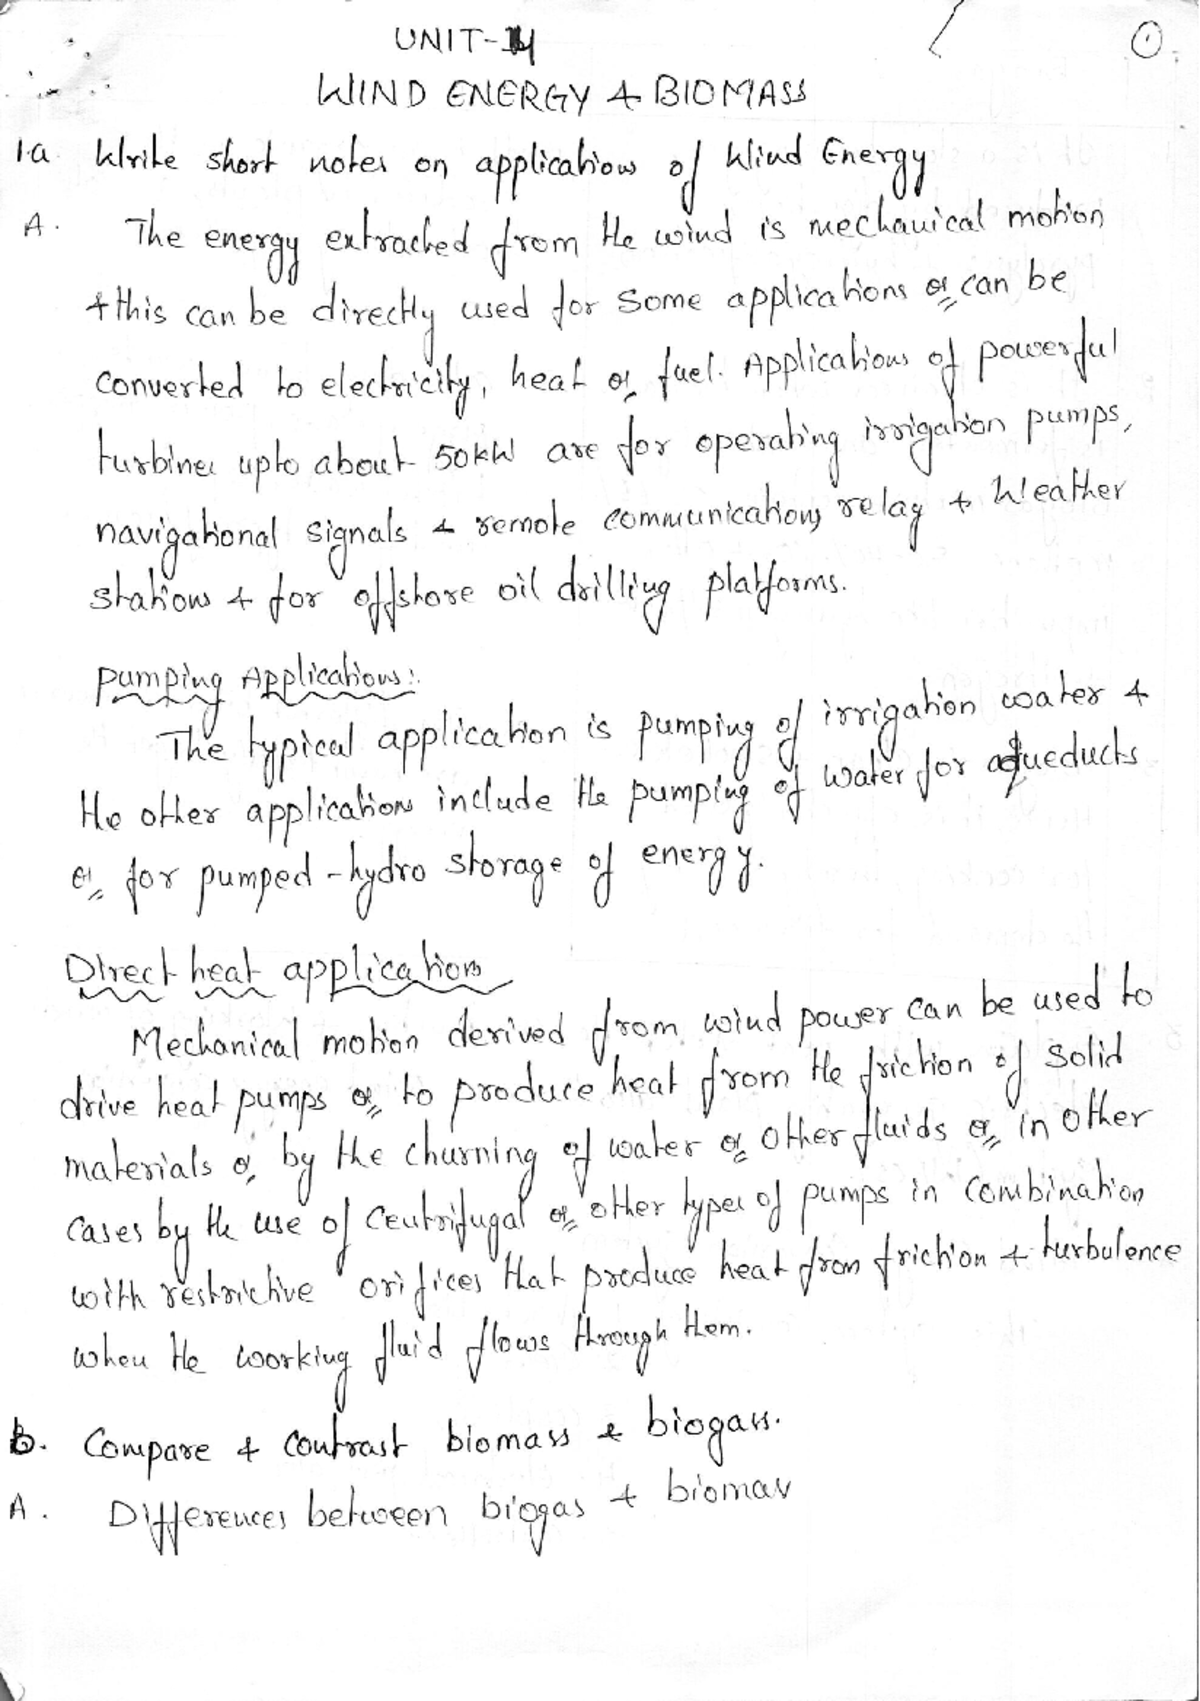 UNIT-4
①
WIND ENERGY & BIOMASS
1.a Write short notes on applications of Wind Energy
A. The energy extracted from the wind is mechanical motion
& this can be directly used for some applications or can be
converted to electricity, heat or fuel. Applications of powerful
turbines upto about 50kW are for operating irrigation pumps,
navigational signals & remote communications relay & Weather
stations & for offshore oil drilling platforms.
Pumping Applications:
The typical application is pumping of irrigation water &
the other applications include the pumping of water for aqueducts
or for pumped-hydro storage of energy.
Direct heat applications
Mechanical motion derived from wind power can be used to
drive heat pumps or to produce heat from the friction of solid
materials or by the churning of water or other fluids or in other
cases by the use of centrifugal or other types of pumps in combination
with restrictive orifices that produce heat from friction & turbulence
when the working fluid flows through them.
b. Compare & contrast biomass & biogass.
A. Differences between biogas & biomass